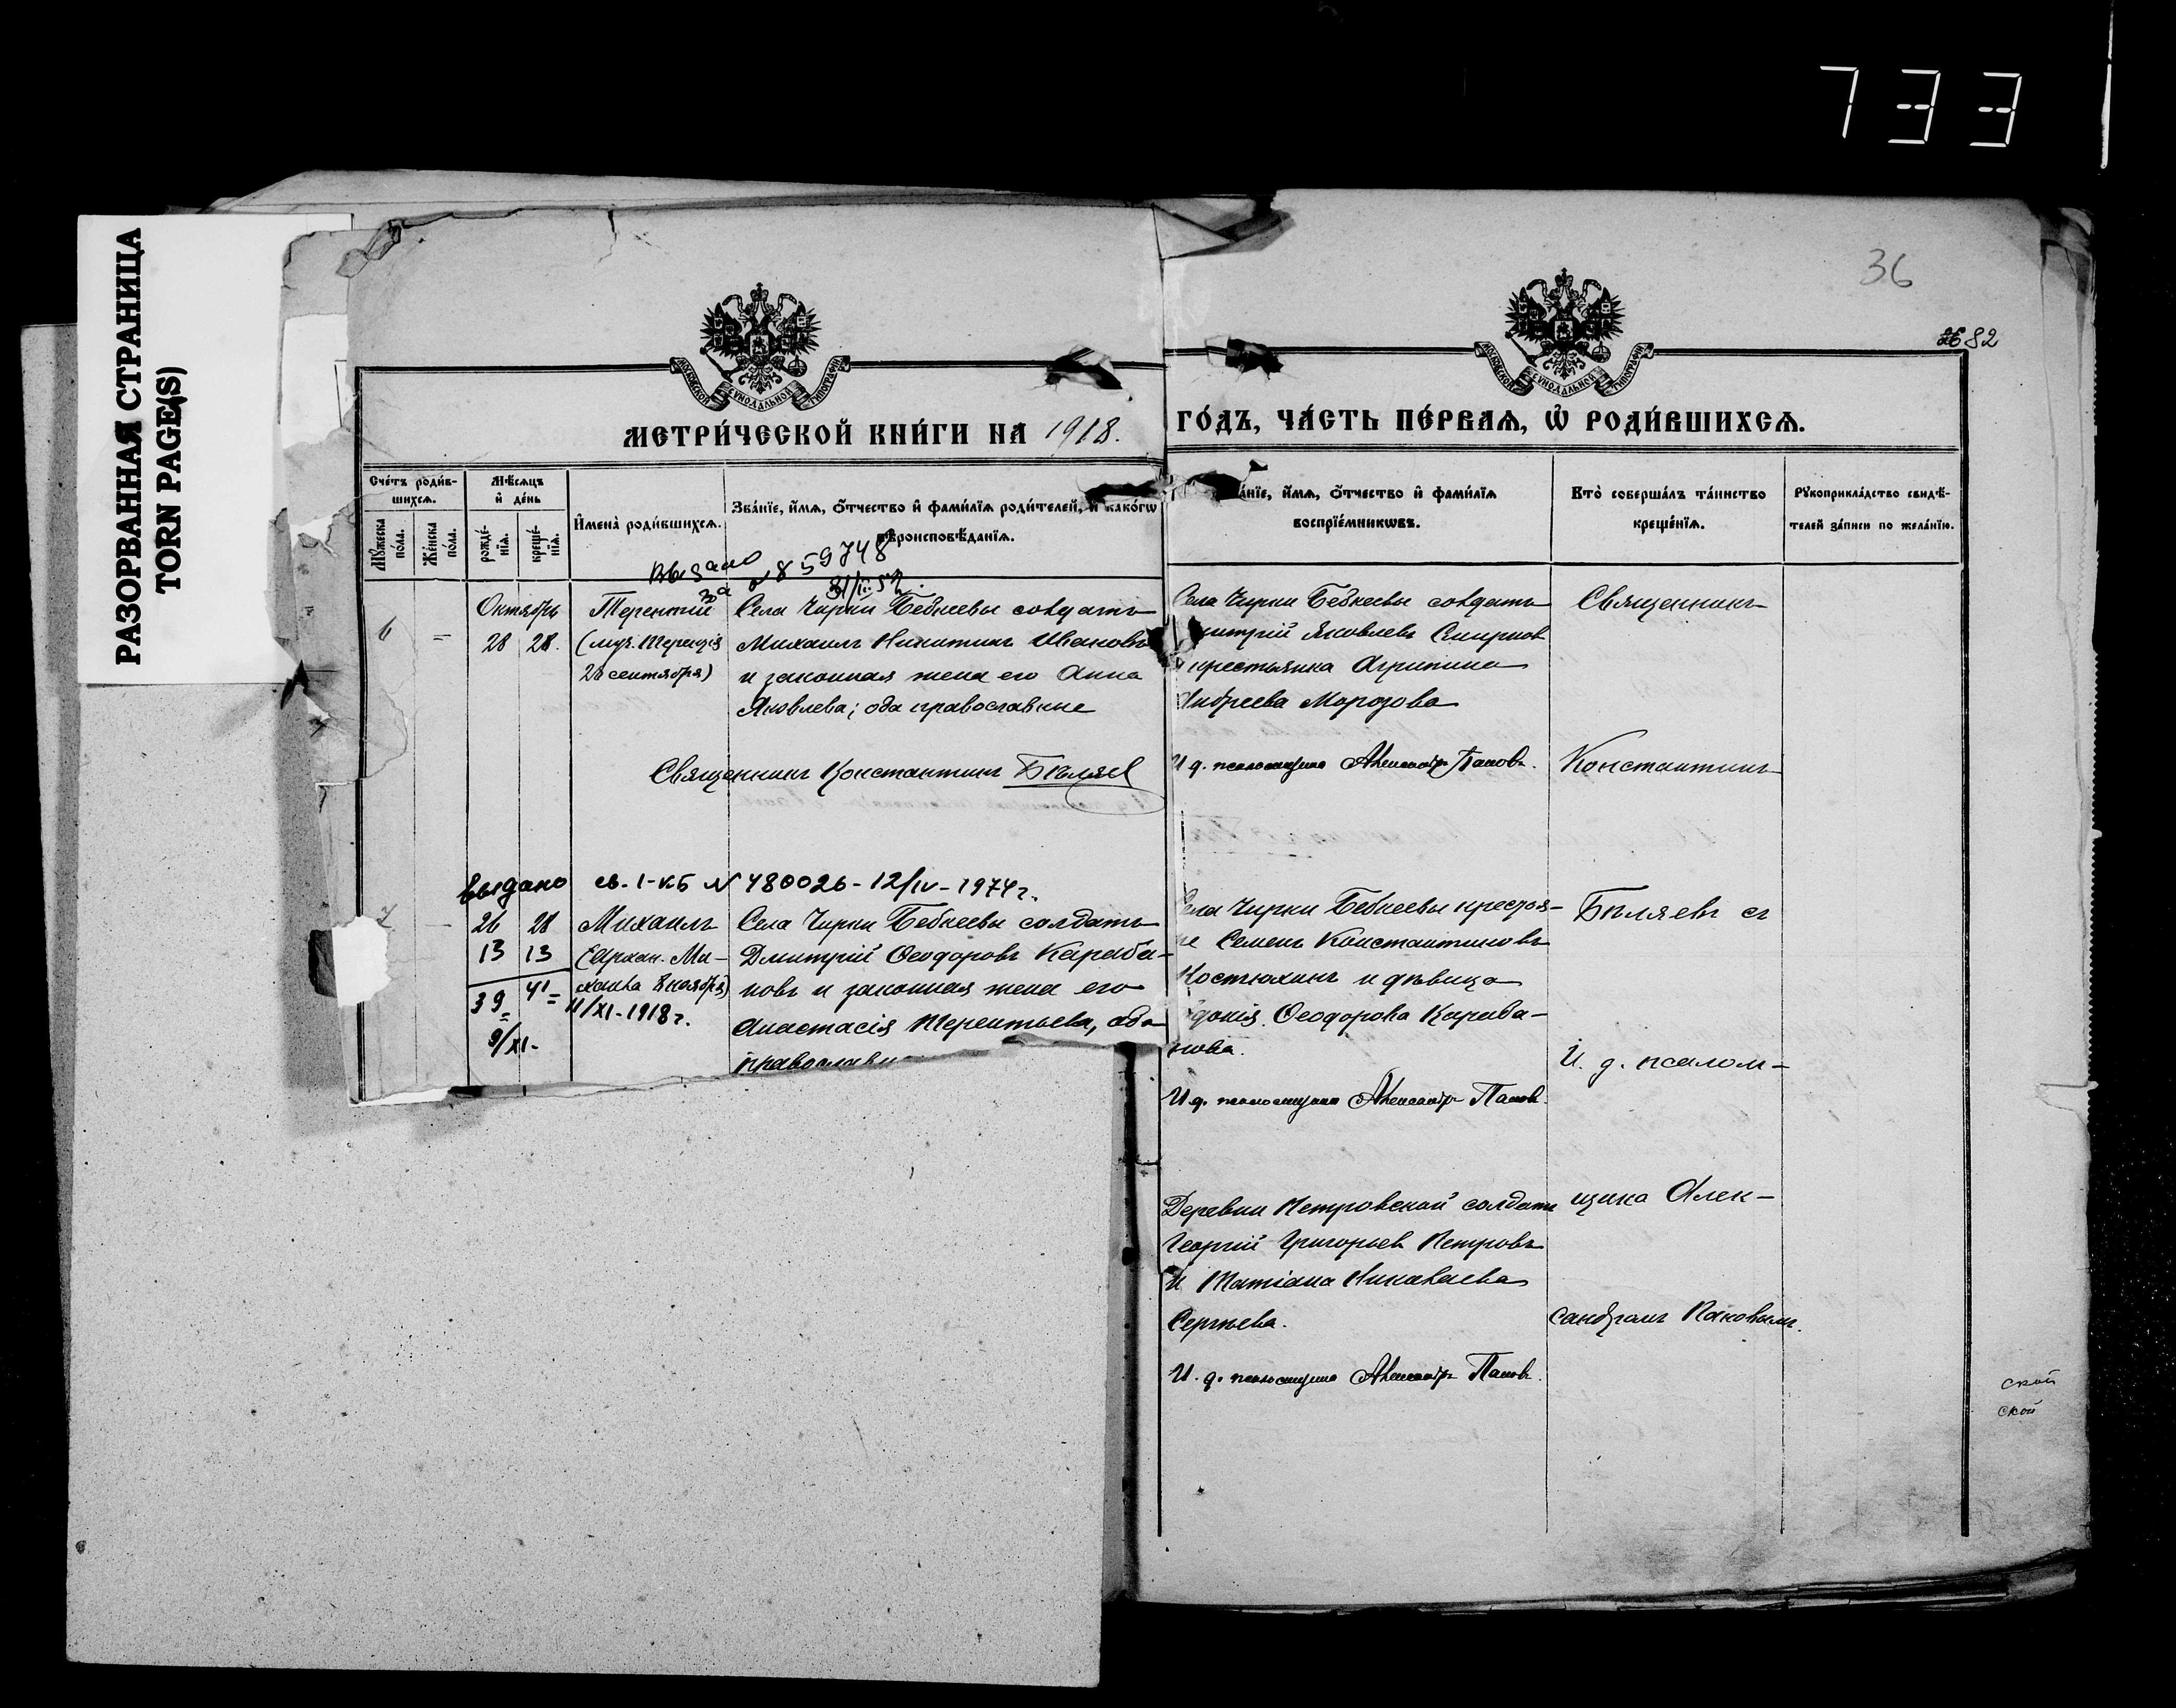 733
РАЗОРВАННАЯ СТРАНИЦА
TORN PAGE(S)
36
82
МОСКОВСКОЙ СѴНОДАЛЬНОЙ ТИПОГРАФІИ
МОСКОВСКОЙ СѴНОДАЛЬНОЙ ТИПОГРАФІИ
МЕТРИ́ЧЕСКОЙ КНИ́ГИ НА 1918. ГО́ДЪ, ЧА́СТЬ ПЕ́РВАѦ, Ѽ РОДИ́ВШИХСѦ.
Сче́тъ роди́в-
шихсѧ.
Мꙋ́жеска по́ла.
Же́нска по́ла.
Мѣ́сѧцъ
и҆ де́нь
рожде́-
нїѧ.
креще́-
нїѧ.
И҆мена̀ роди́вшихсѧ.
Зва́нїе, и҆́мѧ, ѻ҆́тчество и҆ фами́лїѧ роди́телей, и҆ како́гѡ
вѣроисповѣ́данїѧ.
а́нїе, и҆́мѧ, ѻ҆́тчество и҆ фами́лїѧ
воспрїе́мникѡвъ.
Кто̀ соверша́лъ та́инство
креще́нїѧ.
Рꙋкоприкла́дство свидѣ́-
телей за́писи по жела́нїю.
Выдано
859748
Октябрь
6 –
28 28.
Терентій
(муч. Терентія
28 сентября)
Села Чирки Бебкеевы солдатъ
Михаилъ Никитинъ Ивановъ
и законная жена его Анна
Яковлева; оба православные
Священникъ Константинъ Бѣляев
Села Чирки Бебкеевы солдатъ
митрій Яковлевъ Смирнов
и крестьянка Агрипина
Андреева Морозова
И д. псаломщика Александръ Пановъ.
Священникъ
Константинъ
Выдано св. I-КБ N 480026 - 12/IV - 1974 г.
26 28
13 13
39 41
9/XI-
Михаилъ
(Архан. Ми-
хаила 8 ноября)
11/XI-1918 г.
Села Чирки Бебкеевы солдатъ
Дмитрій Ѳеодоровъ Караба-
новъ и законная жена его
Анастасія Терентьева, оба
православн
Села Чирки Бебкеевы крестья-
не Семенъ Константиновъ
Костюхинъ и дѣвица
докія Ѳеодорова Караба-
нова.
И д. псаломщика Александръ Пановъ.
Бѣляевъ съ
И. д. псалом-
Деревни Петровской солдатъ
Георгій Григорьевъ Петровъ
и Татіана Николаева
Сергѣева.
И. д. псаломщика Александръ Пановъ.
щика Алек-
сандромъ Пановымъ.
ской
ской